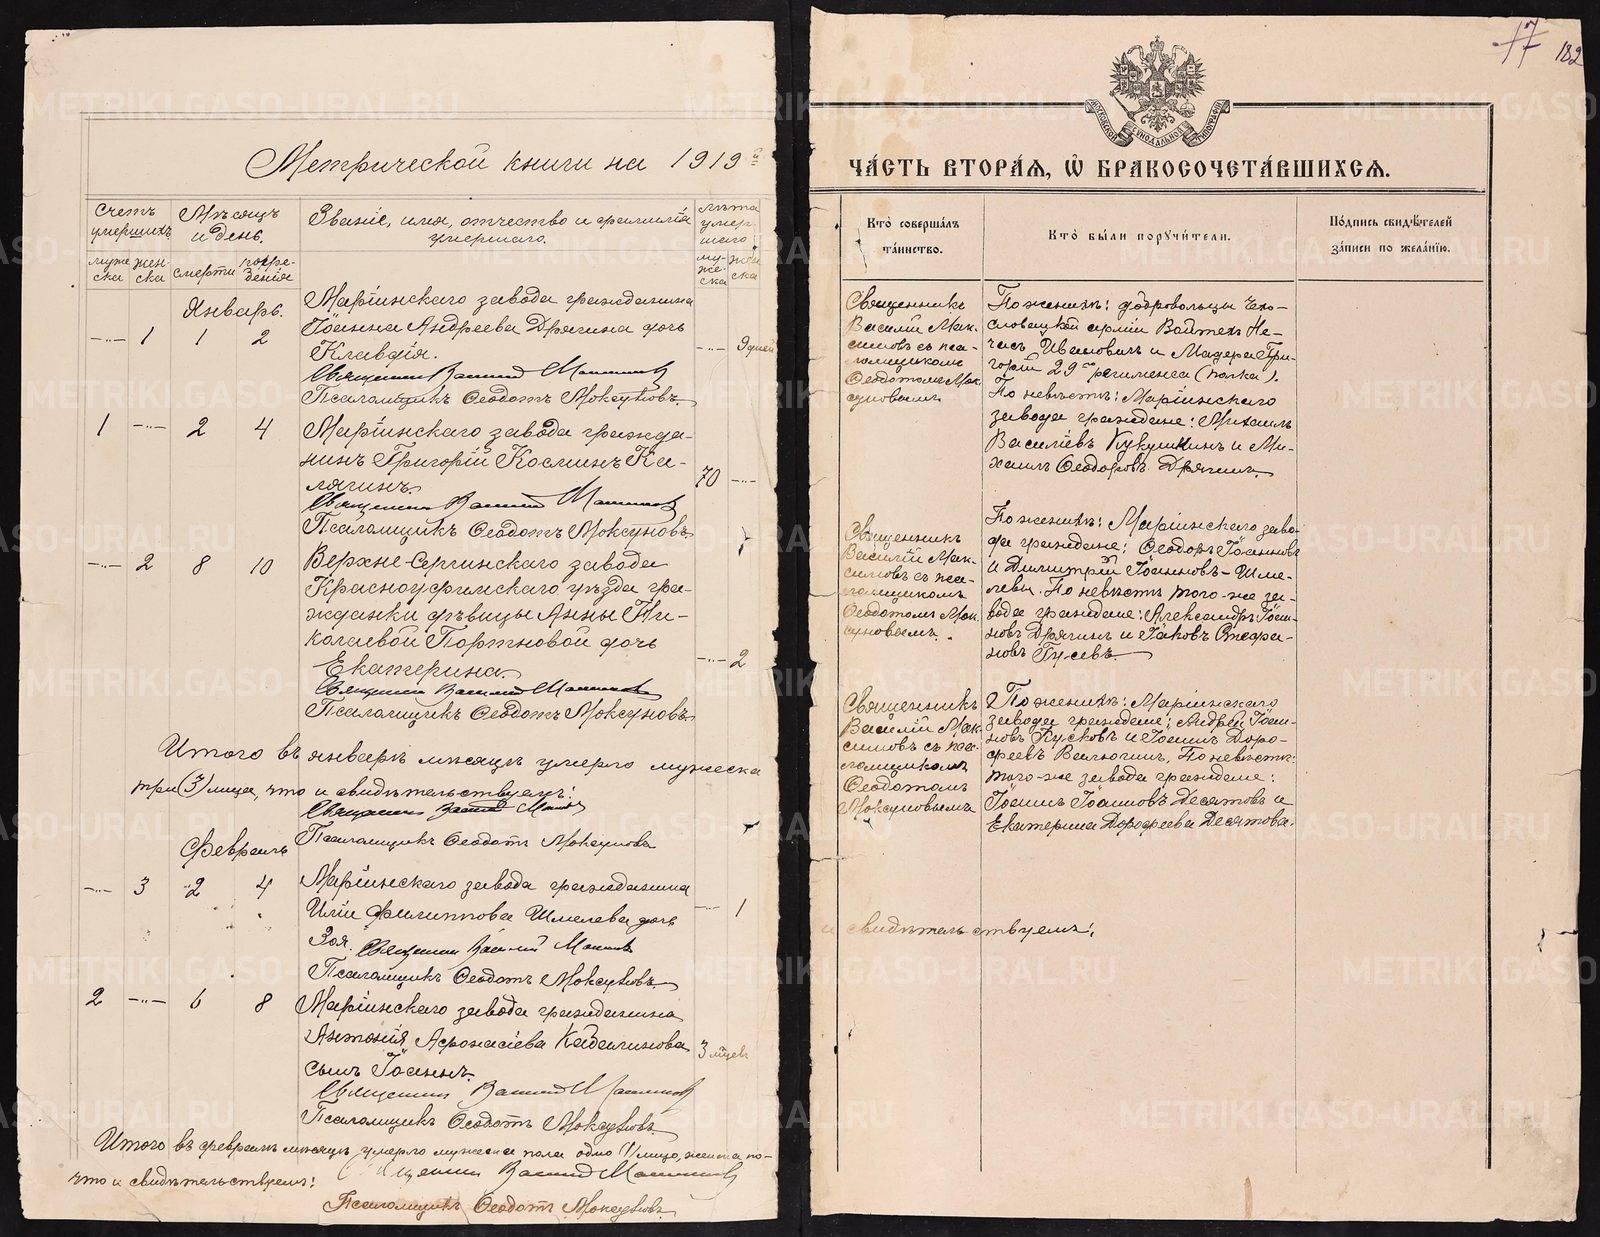 Метрической книги на 1919 й
Счетъ умершихъ.
Мѣсяцъ и день.
Званіе, имя, отчество и фамилія умершаго.
Лѣта умершаго
мужеска женска смерти погребенія мужеска женска
Январь.
1 1 2
Маріинскаго завода гражданина
Іоанна Андреева Дрягина дочь
Клавдія.
9 дней
Священникъ Василій Максимовъ
Псаломщикъ Ѳеодотъ Моксуновъ.
1 2 4
Маріинскаго завода гражда-
нинъ Григорій Косминъ Ка-
лягинъ.
70
Священникъ Василій Максимовъ
Псаломщикъ Ѳеодотъ Моксуновъ
2 8 10
Верхне-Сергинскаго завода
Красноуфимскаго уѣзда гра-
жданки дѣвицы Анны Ни-
колаевой Портновой дочь
Екатерина.
2
Священникъ Василій Максимовъ
Псаломщикъ Ѳеодотъ Моксуновъ
Итого въ январѣ мѣсяцѣ умерло мужеска
три (3) лица, что и свидѣтельствуемъ:
Священникъ
Псаломщикъ Ѳеодотъ Моксунова
Февраль
3 2 4
Маріинскаго завода гражданина
Иліи Филиппова Шмелева дочь
1
Зоя. Священникъ Василій Максимовъ
Псаломщикъ Ѳеодотъ Моксуновъ.
2 6 8
Маріинскаго завода гражданина
Антонія Афонасіева
3 мѣсяц.
сынъ Іоаннъ.
Священникъ Василій Максимовъ
Псаломщикъ Ѳеодотъ Моксуновъ.
Итого въ февралѣ мѣсяцѣ умерло мужеска пола одно (1) лицо, женска по-
что и свидѣтельствуемъ: Священникъ Василій Максимовъ
Псаломщикъ Ѳеодотъ Моксуновъ.
17 182
МОСКОВСКОЙ СѴНОДАЛЬНОЙ ТИПОГРАФІИ
ЧА́СТЬ ВТОРА́Я, Ѽ БРАКОСОЧЕТА́ВШИХСЯ.
Кто̀ соверша́лъ
та́инство.
Кто̀ бы́ли поручи́тели.
По́дпись свидѣ́телей
за́писи по жела́нїю.
Священникъ
Василій Мак-
симовъ съ пса-
ломщикомъ
Ѳеодотомъ Мок-
суновымъ
По женихѣ: добровольцы Чехо-
словацкой арміи Войтехъ Не-
часъ Ивановичъ и Мадера Гри-
горій 29го регимента (полка).
По невѣстѣ: Маріинскаго
завода граждане: Михаилъ
Василіевъ Кукушкинъ и Ми-
хаилъ Ѳеодоровъ Дрягинъ
Священникъ
Василій Мак-
симовъ съ пса-
ломщикомъ
Ѳеодотомъ Мок-
суновымъ.
По женихѣ: Маріинскаго заво-
да граждане: Ѳеодоръ Іоанновъ
и Димитрій Іоанновъ - Шме-
левы. По невѣстѣ того-же за-
вода граждане: Александръ Іоан-
новъ Дрягинъ и Іаковъ Стефа-
новъ Гусевъ.
Священникъ
Василій Мак-
симовъ съ пса-
ломщикомъ
Ѳеодотомъ
Моксуновымъ
По женихѣ: Маріинскаго
завода граждане: Андрей Іоан-
новъ Пусковъ и Іоаннъ Доро-
феевъ Валюгинъ. По невѣстѣ:
того-же завода граждане:
Іоаннъ Іоанновъ Десятовъ и
Екатерина Дорофеева Десятова.
и свидѣтельствуемъ:
METRIKI.GASO-URAL.RU